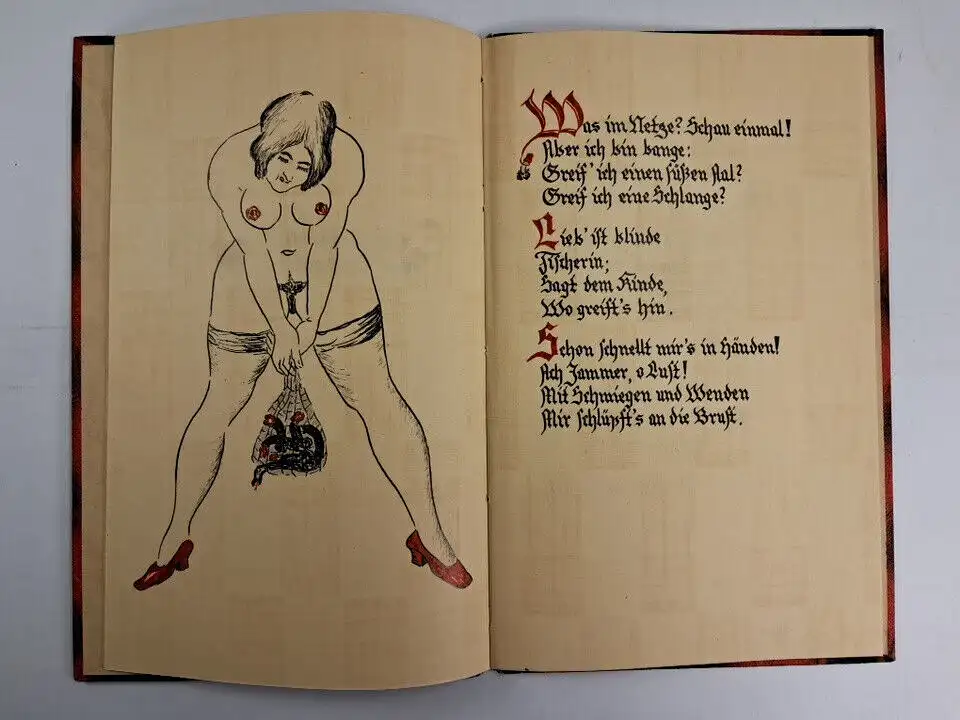 Was im Netze? Schau einmal!
Aber ich bin bange:
Greif' ich einen süßen Aal?
Greif ich eine Schlange?
Lieb' ist blinde
Fischerin;
Sagt dem Kinde,
Wo greift's hin.
Schon schnellt mir's in Händen!
Ach Jammer, o Lust!
Mit Schmiegen und Wenden
Mir schlüpft's an die Brust.